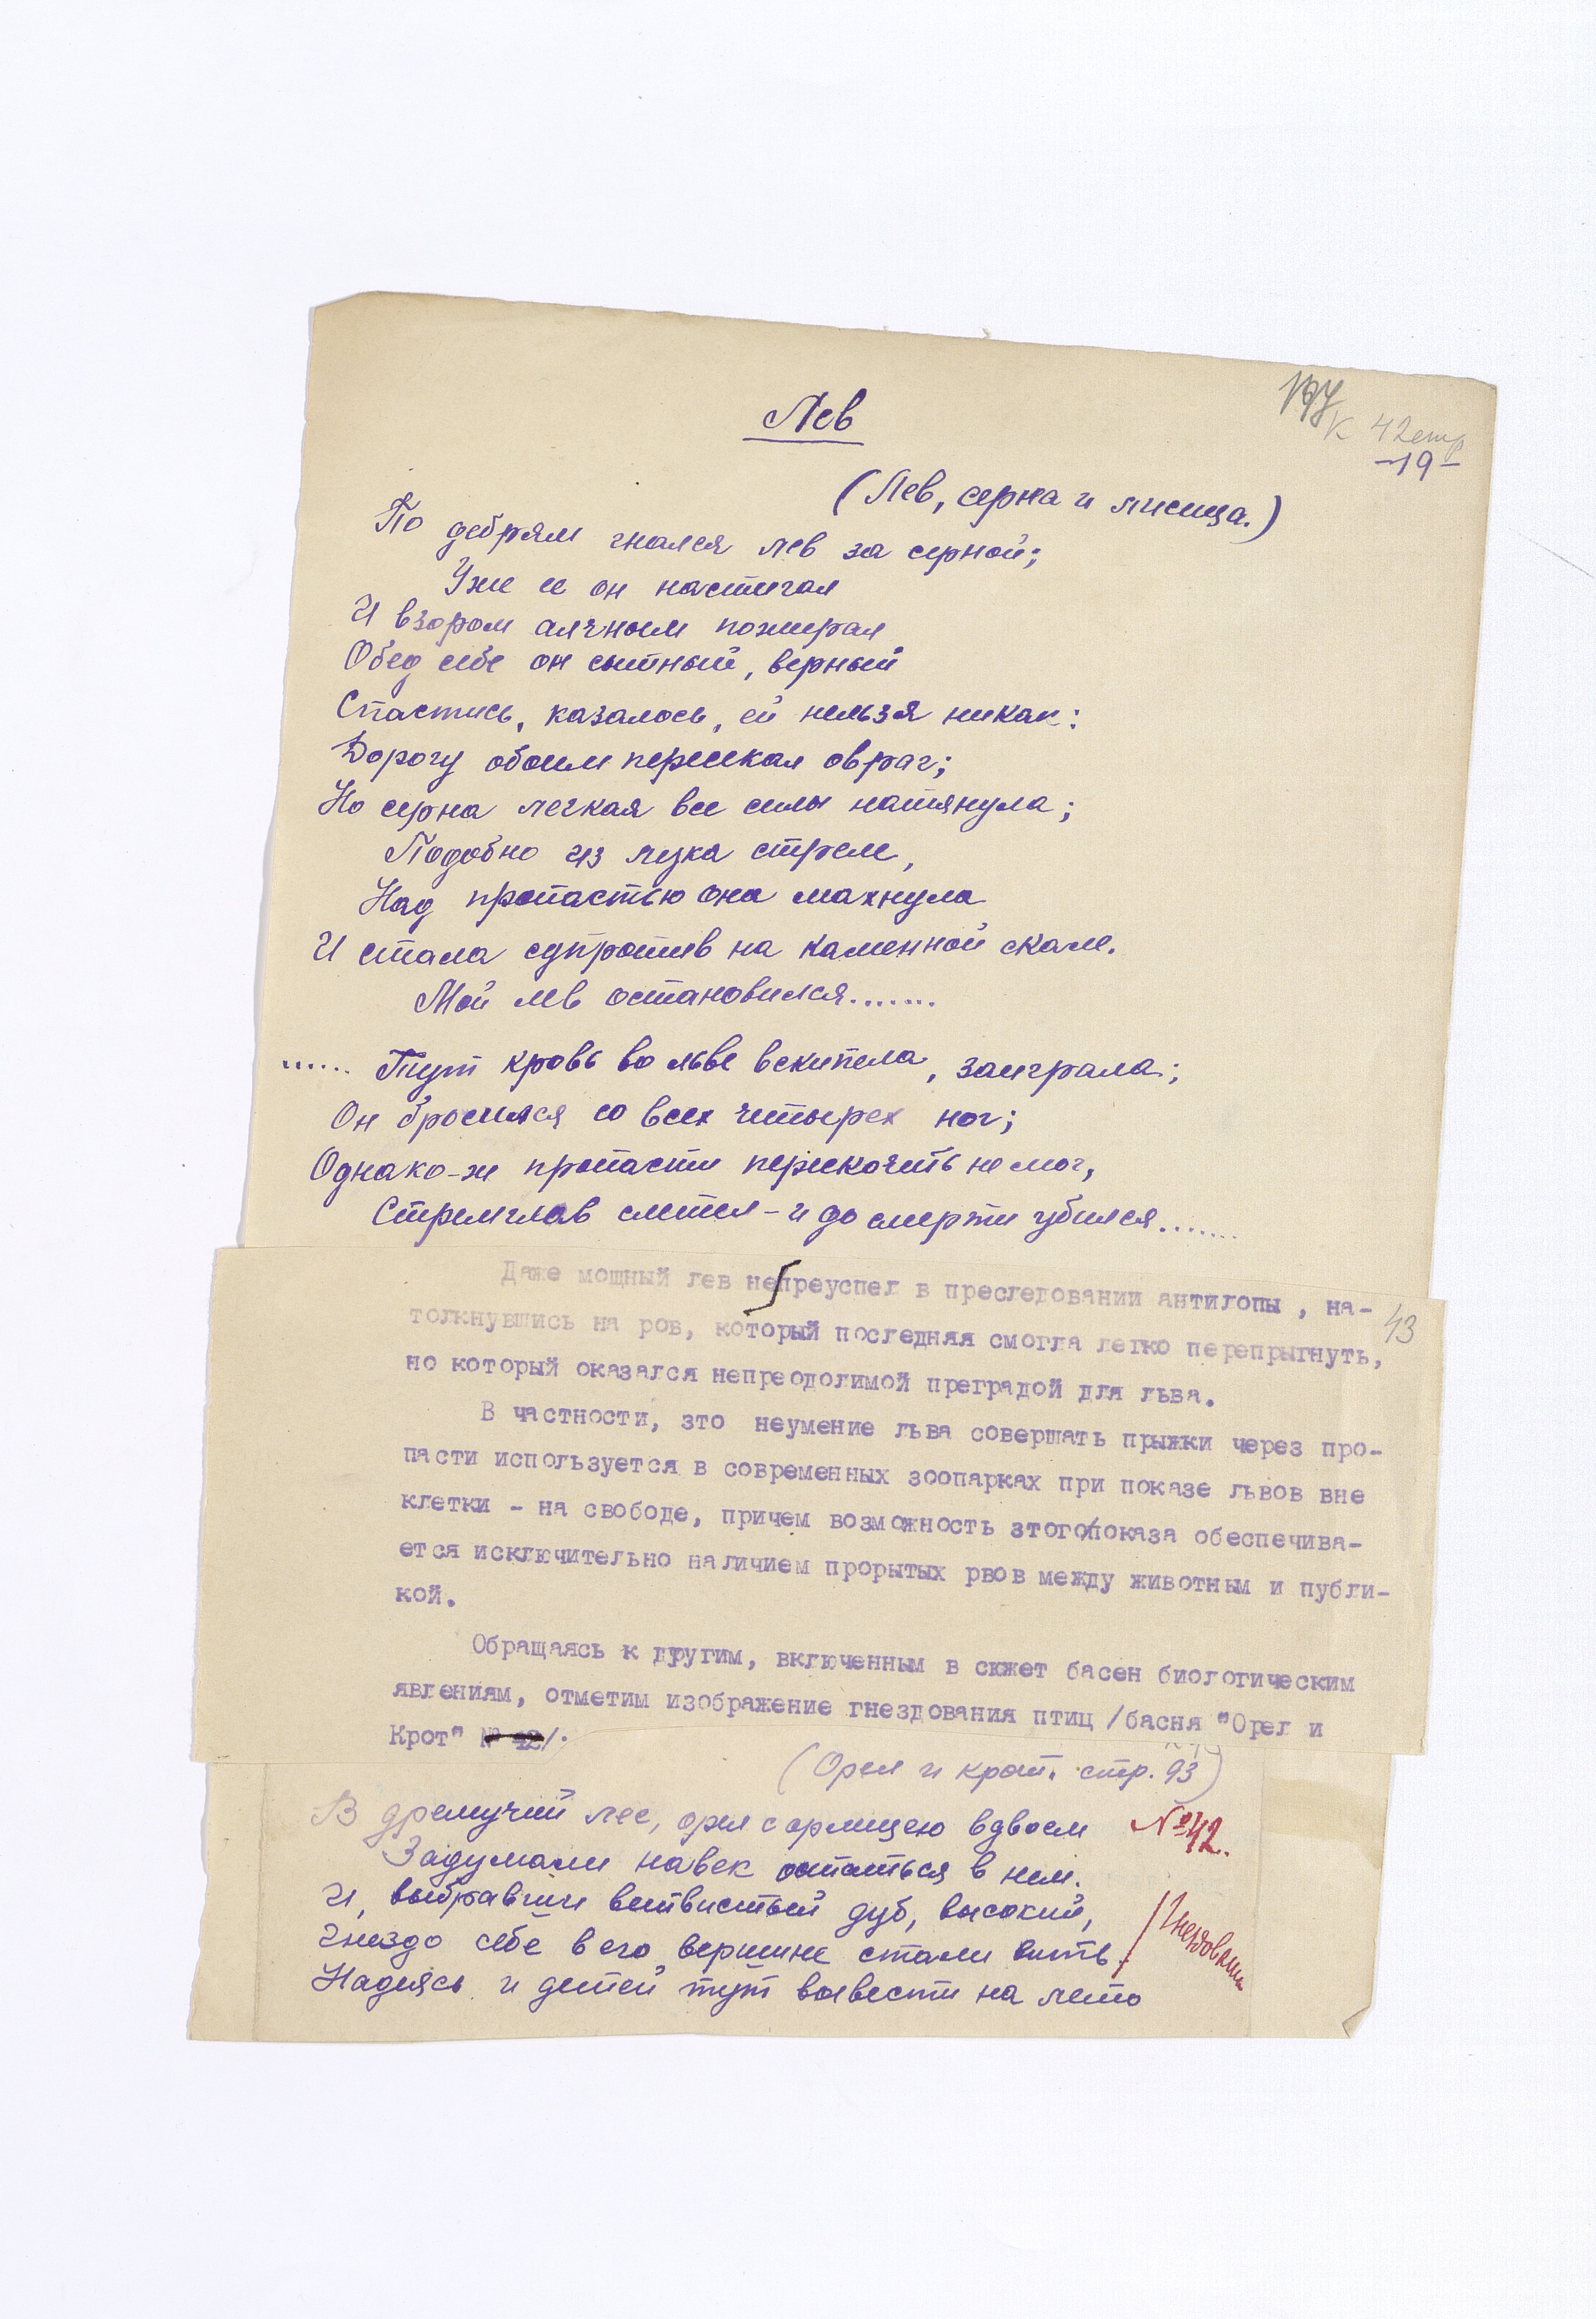 Лев
к 42 стр
-19-
(Лев, серна и лисица.)
По дебрям гнался лев за серной;
Уже ее он настигал
И взором алчным пожирал
Обед себе он сытный, верный
Спастись, казалось, ей нельзя никак:
Дорогу обоим пересекал овраг;
Но серна легкая все силы натянула;
Подобно из лука стреле,
Над пропастью она махнула
И стала супротив на каменной скале.
Мой лев остановился.......
...... Тут кровь во льве вскипела, заиграла;
Он бросился со всех четырех ног;
Однако-ж пропасти перескочить не мог,
Стремглав слетел – и до смерти убился.......
Даже мощный лев непреуспел в преследовании антилопы , на-
43
толкнувшись на ров, который последняя смогла легко перепрыгнуть,
но который оказался непреодолимой преградой для льва.
В частности, это неумение льва совершать прыжки через про-
пасти используется в современных зоопарках при показе львов вне
клетки - на свободе, причем возможность этого показа обеспечива-
ется исключительно наличием прорытых рвов между животным и публи-
кой.
Обращаясь к другим, включенным в сюжет басен биологическим
явлениям, отметим изображение гнездования птиц /басня "Орел и
Крот" № 42/.
(Орел и крот. стр. 93)
В дремучий лес, орел с орлицею вдвоем
№42.
Задумали навек остаться в нем.
И, выбравши ветвистый дуб, высокий,
Гнездо себе в его вершине стали вить
Надеясь и детей тут вывести на лето